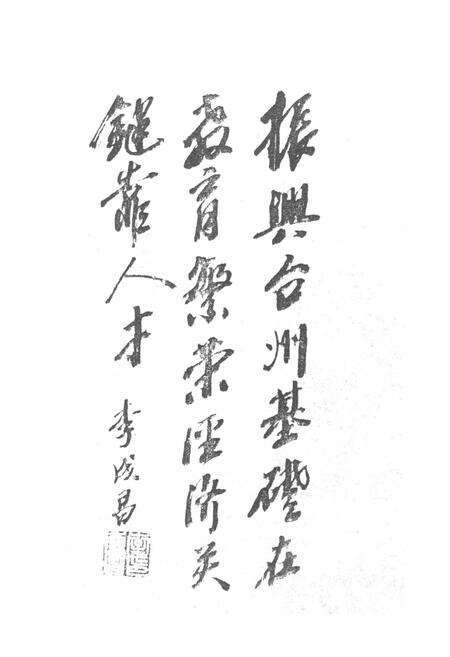 振興台州基礎在
教育繁荣經济关
鍵靠人才
李成昌